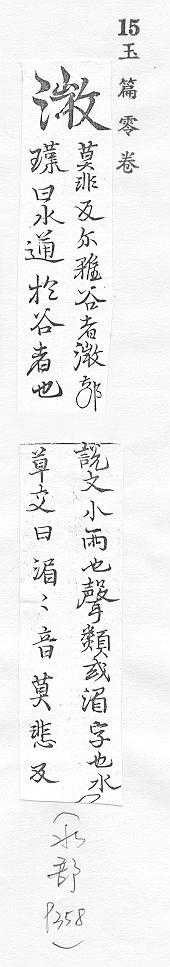 15玉篇零卷
溦
莫非反尓雅谷者溦郭
璞曰水通於谷者也
説文小雨也聲類或湄字也水
草交曰湄〻音莫悲反
(水部 p358)